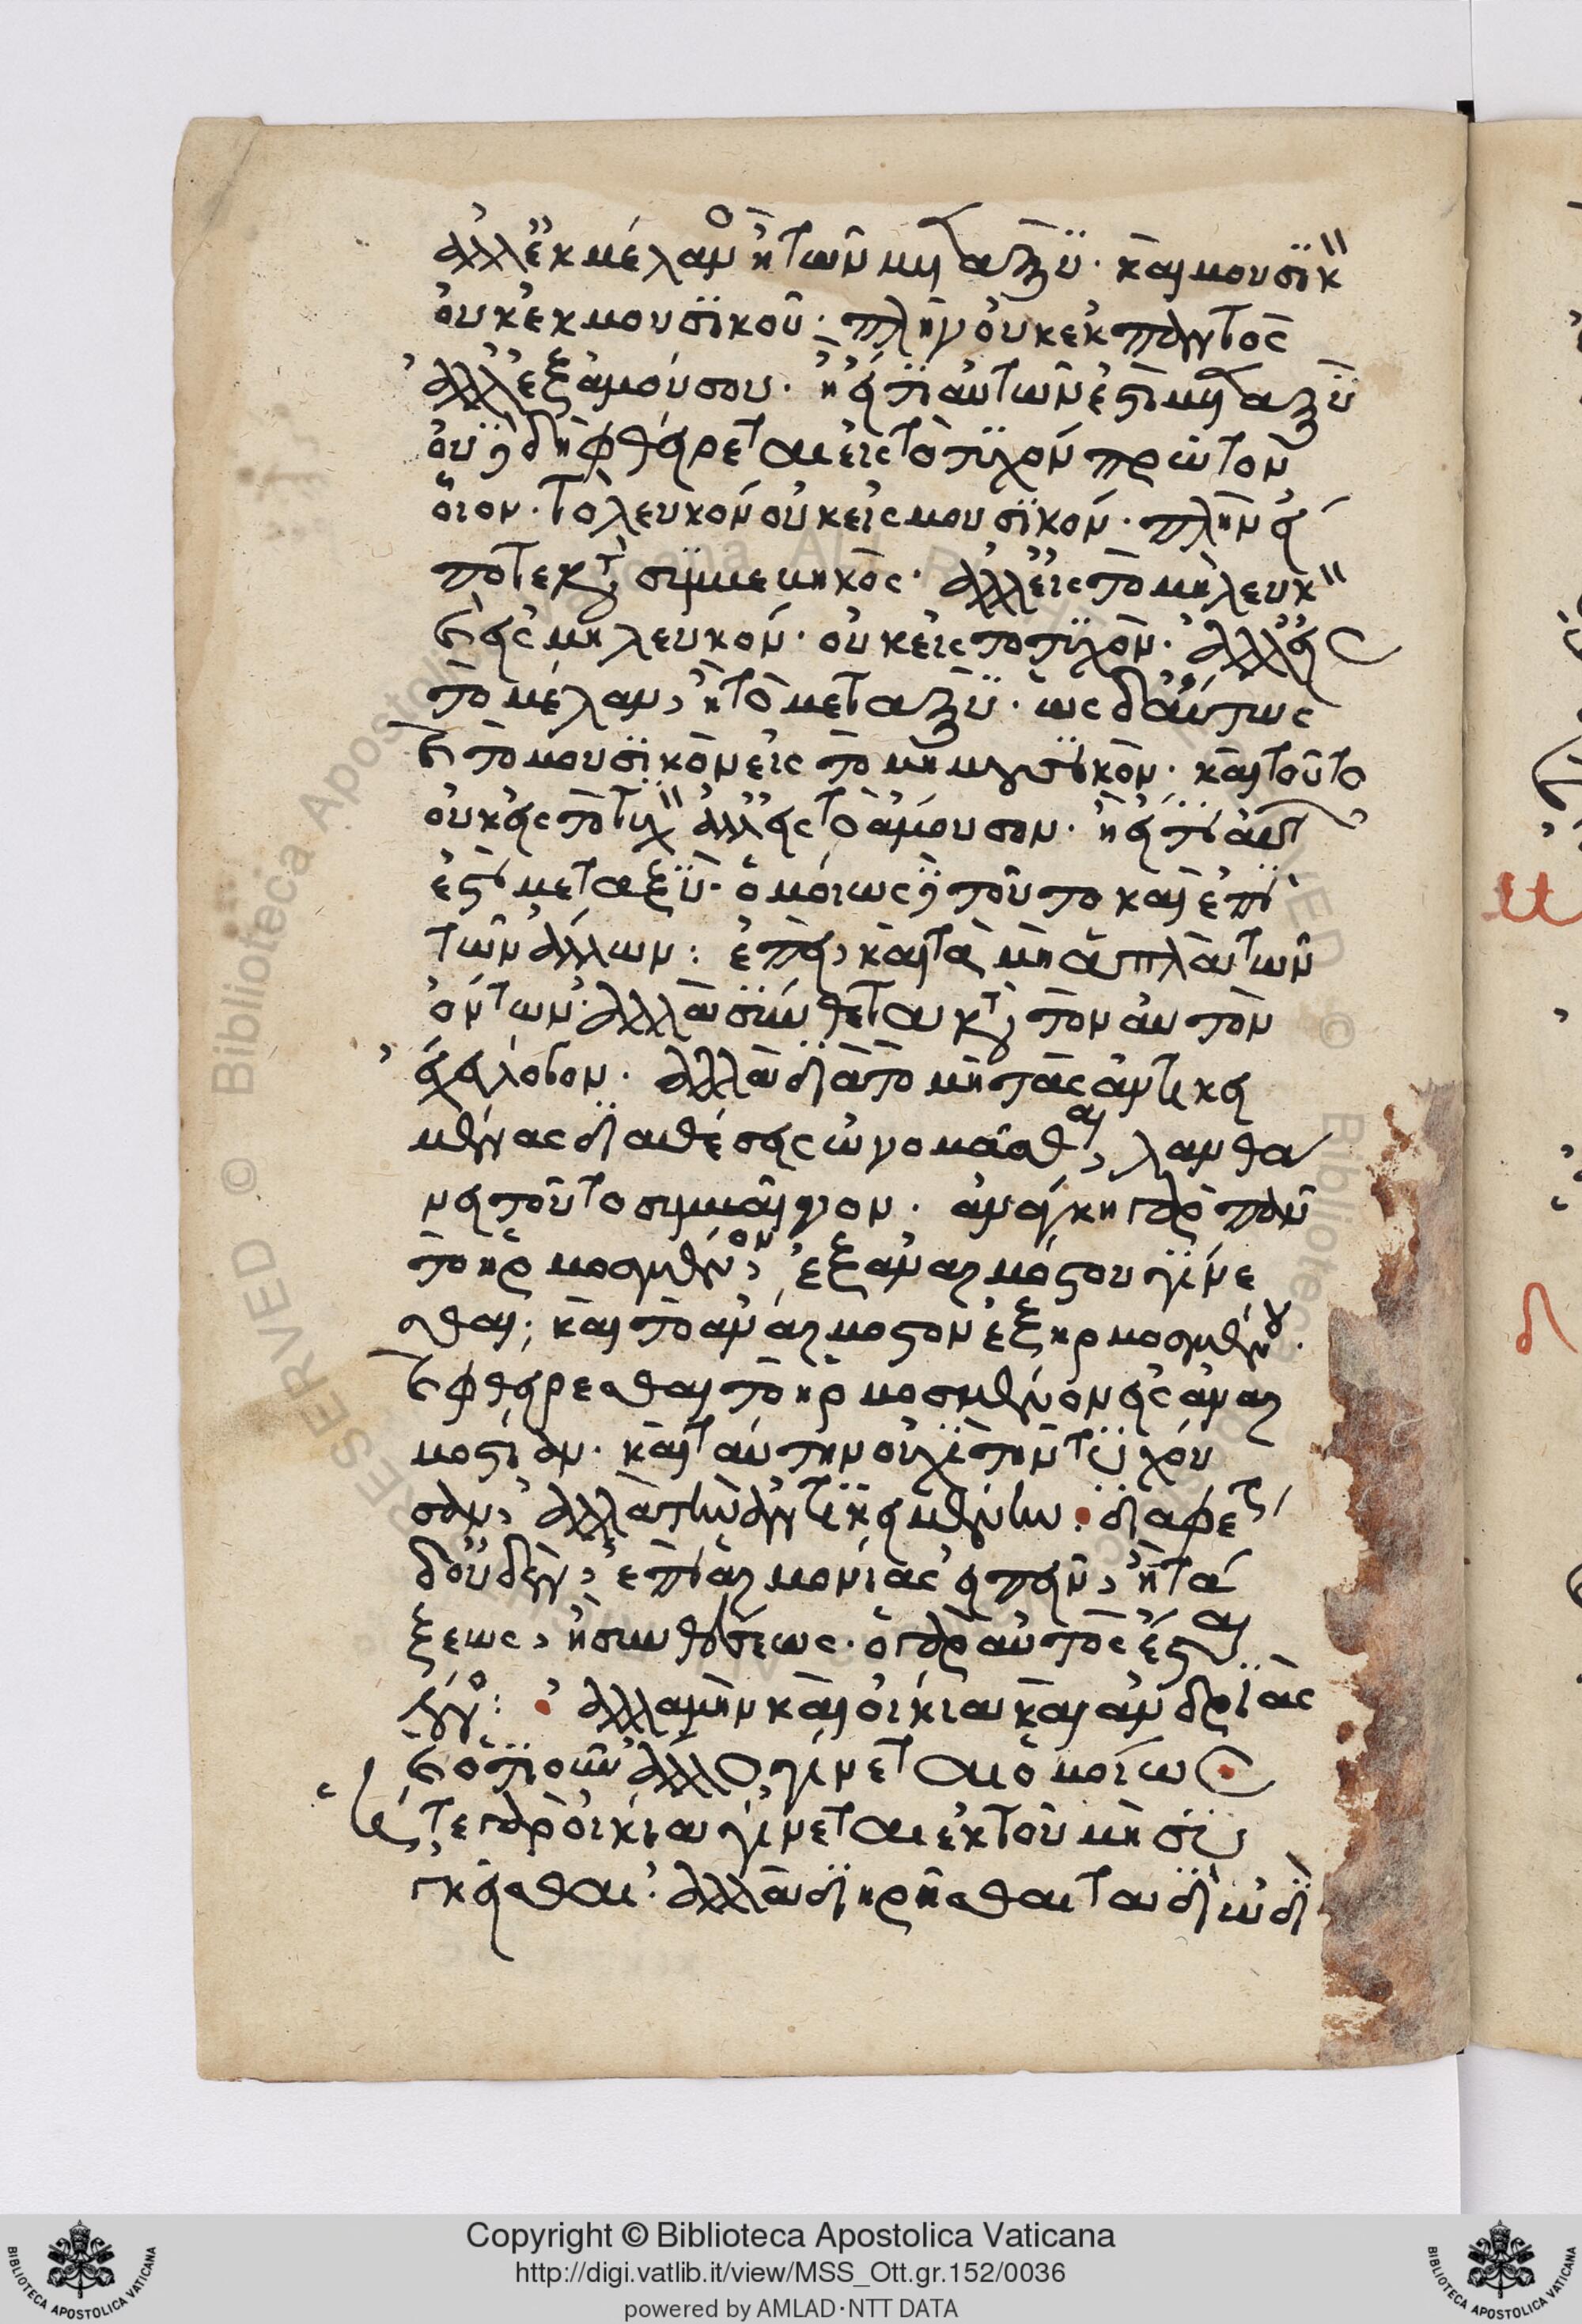 ἀλλ' ἐκ μέλανος ἢ τῶν μεταξύ· καὶ μουσικὸν
οὐκ ἐκ μουσικοῦ· πλὴν οὐκ ἐκ παντὸς
ἀλλ' ἐξ ἀμούσου· ἢ εἴ τι αὐτῶν ἐστὶ μεταξύ
οὐδὲ δὴ φθείρεται εἰς τὸ τυχὸν πρῶτον
οἷον· τὸ λευκὸν οὐκ εἰς μουσικόν· πλὴν εἰ
ποτε κατὰ συμβεβηκός· ἀλλ' εἰς τὸ μὴ λευκὸν
καὶ εἰς μὴ λευκόν· οὐκ εἰς τὸ τυχὸν· ἀλλ' εἰς
τὸ μέλαν, ἢ τὸ μεταξύ· ὡς δ' αὔτως
καὶ τὸ μουσικὸν εἰς τὸ μὴ μουσικόν· καὶ τοῦτο
οὐκ εἰς τὸ τυχὸν ἀλλ' εἰς τὸ ἄμουσον· ἢ εἴ τι αὐτῶν
ἐστὶ μεταξύ· ὁμοίως δὲ τοῦτο καὶ ἐπὶ
τῶν ἄλλων: ἐπεὶ καὶ τὰ μὴ ἁπλᾶ τῶν
ὄντων· ἀλλὰ σύνθετα κατὰ τὸν αὐτὸν
ἔχει λόγον· ἀλλὰ διὰ τὸ μὴ τὰς ἀντικει
μένας διαθέσεις ὠνομάσθαι, λανθά
νει τοῦτο συμβαῖνον· ἀνάγκη γὰρ πᾶν
τὸ ἡρμοσμένον, ἐξ ἀναρμόστου γίνε
σθαι· καὶ τὸ ἀνάρμοστον ἐξ ἡρμοσμένου·
καὶ φθείρεσθαι τὸ ἡρμοσμένον εἰς ἀναρ
μοστίαν· καὶ ταύτην οὐχὶ τὴν τυχοῦ
σαν, ἀλλὰ τὴν ἀντικειμένην· διαφέρει
δ' οὐδὲν, ἐπὶ ἁρμονίας εἰπεῖν, ἢ τά
ξεως, ἢ συνθέσεως· ὁ γὰρ αὐτὸς ἔσται
λόγος: ἀλλὰ μὴν καὶ οἰκία καὶ ἀνδριὰς
καὶ ὁτιοῦν ἄλλο γίνεται ὁμοίως·
ἥ τε γὰρ οἰκία γίνεται ἐκ τοῦ μὴ συ
γκεῖσθαι· ἀλλὰ διῃρῆσθαι ταδὶ ὡδὶ
Copyright © Biblioteca Apostolica Vaticana
http://digi.vatlib.it/view/MSS_Ott.gr.152/0036
powered by AMLAD·NTT DATA